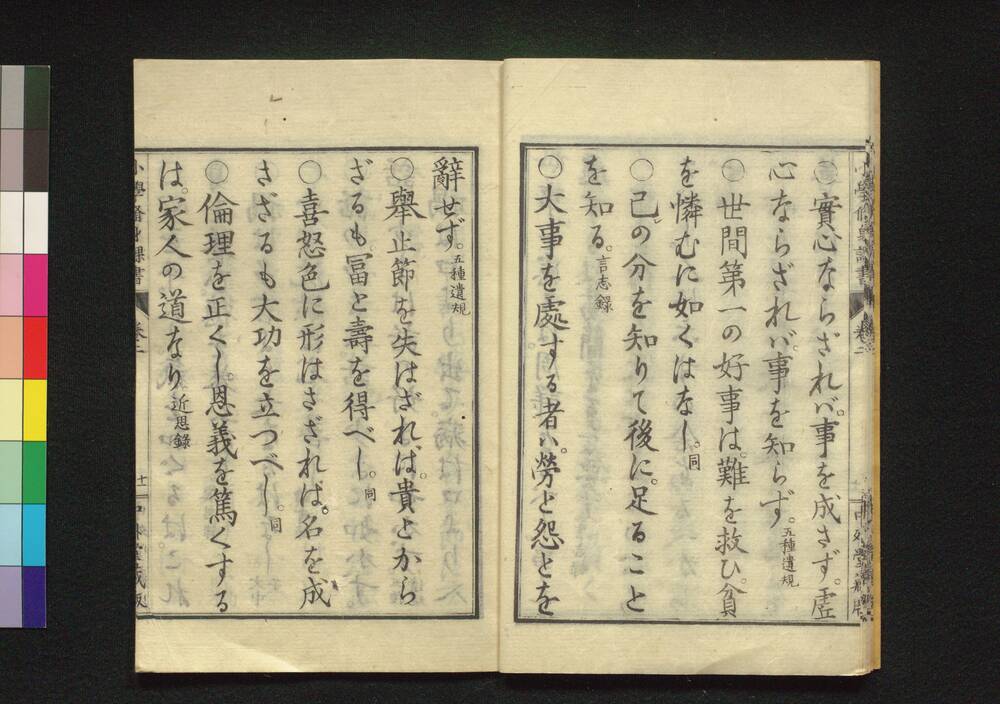 〇實心ならざれバ。事を成さず。虚
心ならざれバ。事を知らず。五種遺規
〇世間第一の好事は。難を救ひ。貧
を憐むに如くはなし。同
〇己の分を知りて後に。足ること
を知る。言志録
〇大事を處する者ハ。勞と怨とを
辭せず。五種遺規
〇擧止節を失はざれば。貴とから
ざるも。冨と壽を得べし。同
〇喜怒色に形はさざれば。名を成
さざるも大功を立つべし。同
〇倫理を正くし。恩義を篤くする
は。家人の道なり 近思錄
小學脩身課書
卷二
十一